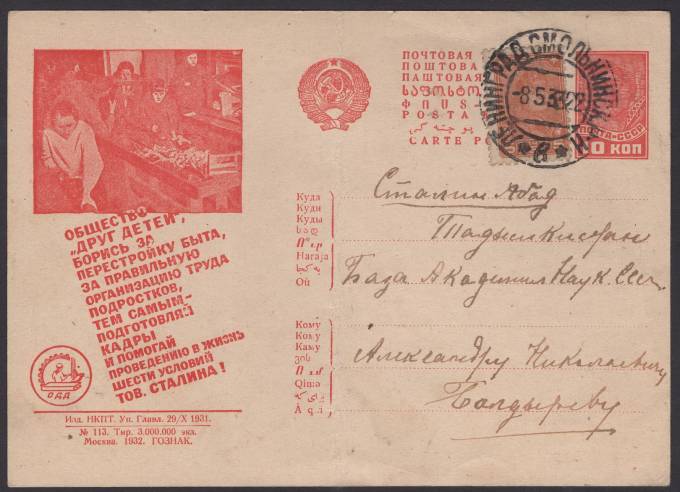 ОБЩЕСТВО
„ДРУГ ДЕТЕЙ“,
БОРИСЬ ЗА
ПЕРЕСТРОЙКУ БЫТА,
ЗА ПРАВИЛЬНУЮ
ОРГАНИЗАЦИЮ ТРУДА
ПОДРОСТКОВ,
ТЕМ САМЫМ—
ПОДГОТОВЛЯЙ
КАДРЫ
И ПОМОГАЙ
ПРОВЕДЕНИЮ В ЖИЗНЬ
ШЕСТИ УСЛОВИЙ
ТОВ. СТАЛИНА!
ОДД
Изд. НКПТ. Уп. Главл. 29/X 1931.
№ 113. Тир. 3.000.000 экз.
Москва. 1932. ГОЗНАК.
ПОЧТОВАЯ
ПОШТОВА
ПАШТОВАЯ
POSTA
CARTE PO
ЛЕНИНГРАД СМОЛЬНИНСК
-8 5 33
8
ПОЧТА СССР
0 КОП
Куда
Куди
Куды
Haraja
Кому
Кому
Каму
Qima
Сталин Абад
Таджикистан
База Академии Наук СССР
Александру Николаевичу
Болдыреву